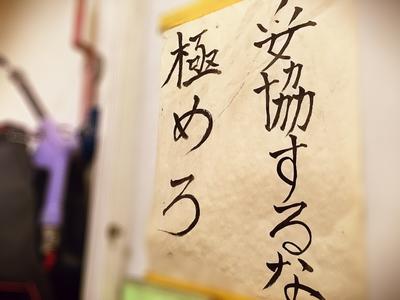 妥協するな
極めろ